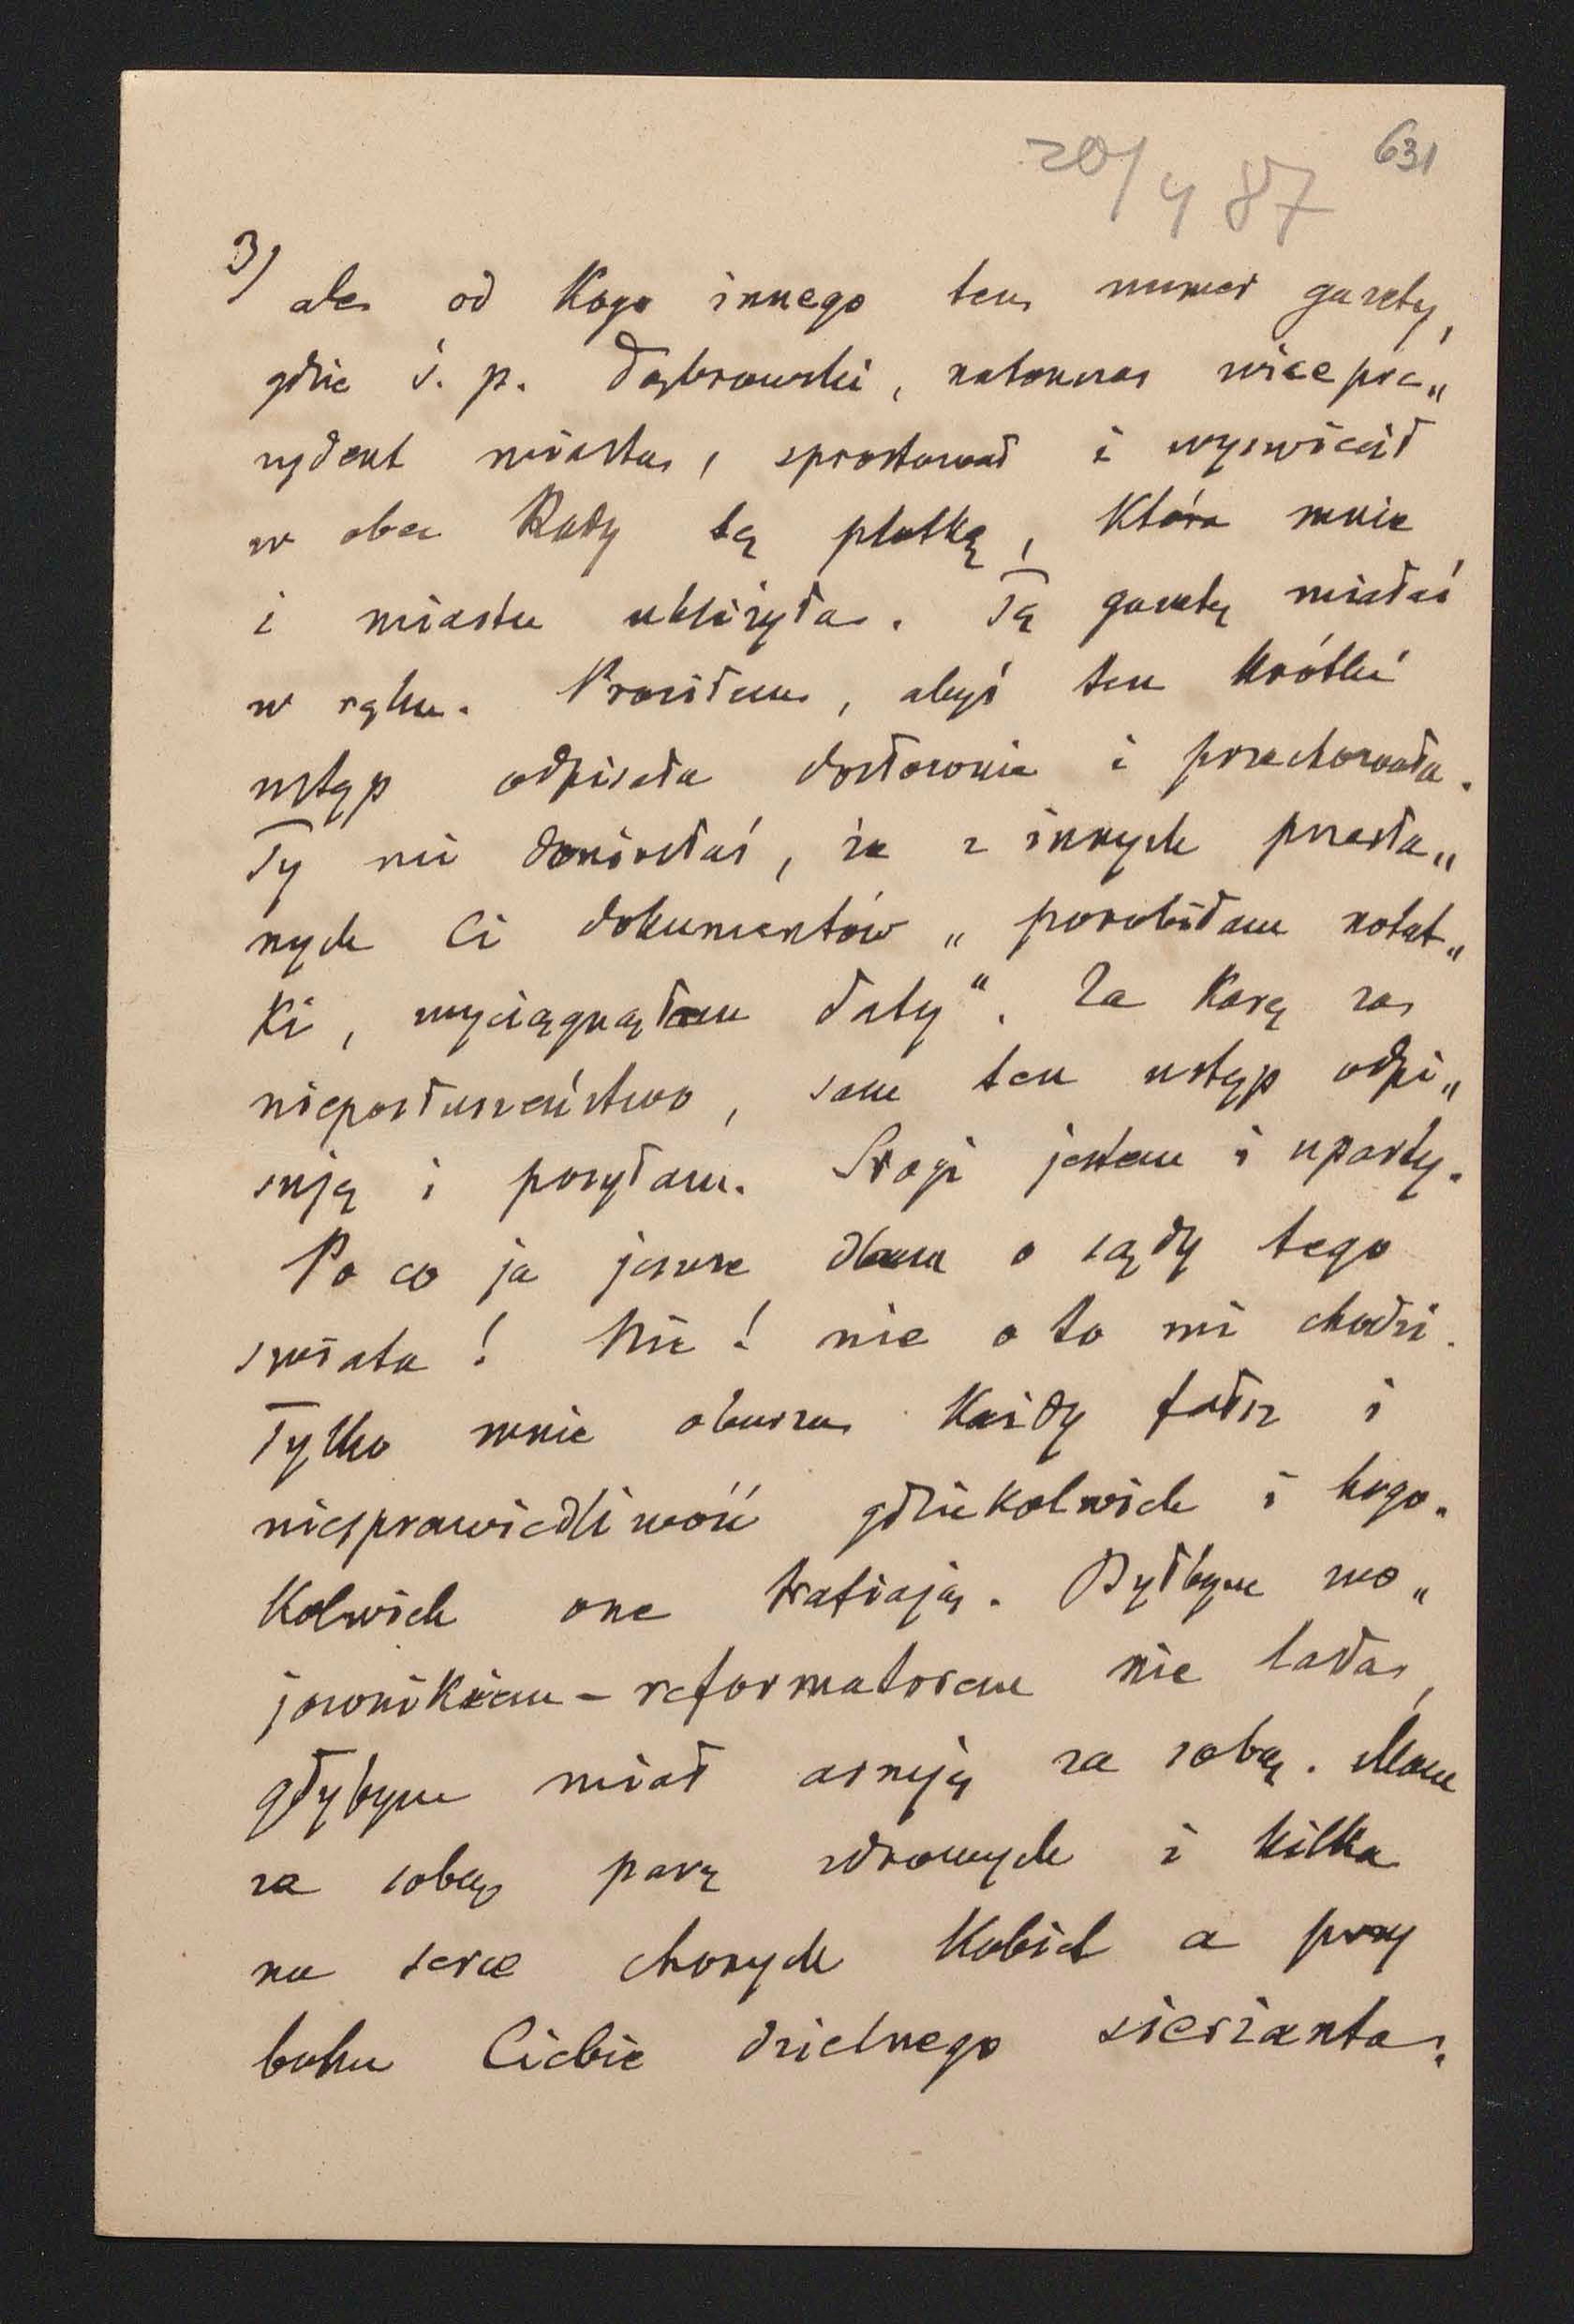 20/4 87
631
3/ ale od kogo innego ten numer gazety,
gdzie ś. p. Dąbrowski, natenczas wicepre„
zydent miasta, sprostował i wyświecił
w obec Rady tą plotkę, która mnie
i miastu ubliżyła. Tą gazetę miałaś
w ręku. Prosiłem, abyś ten krótki
ustęp odpisała dosłownie i przechowała.
Ty mi doniosłaś, że z innych przesła„
nych Ci dokumentów „porobiłam notat„
ki, wyciągnęłam daty". Za karę za
nieposłuszeństwo, sam ten ustęp odpi„
suję i posyłam. Srogi jestem i uparty.
Po co ja jeszcze dbam o sądy tego
świata! Nie! nie o to mi chodzi.
Tylko mnie oburza każdy fałsz i
niesprawiedliwość gdziekolwiek i kogo„
kolwiek one trafiają. Byłbym wo„
jownikiem - reformatorem nie lada,
gdybym miał armję za sobą. Mam
za sobą parę zdrowych i kilka
na serce chorych kobiet a przy
boku Ciebie dzielnego sierżanta.